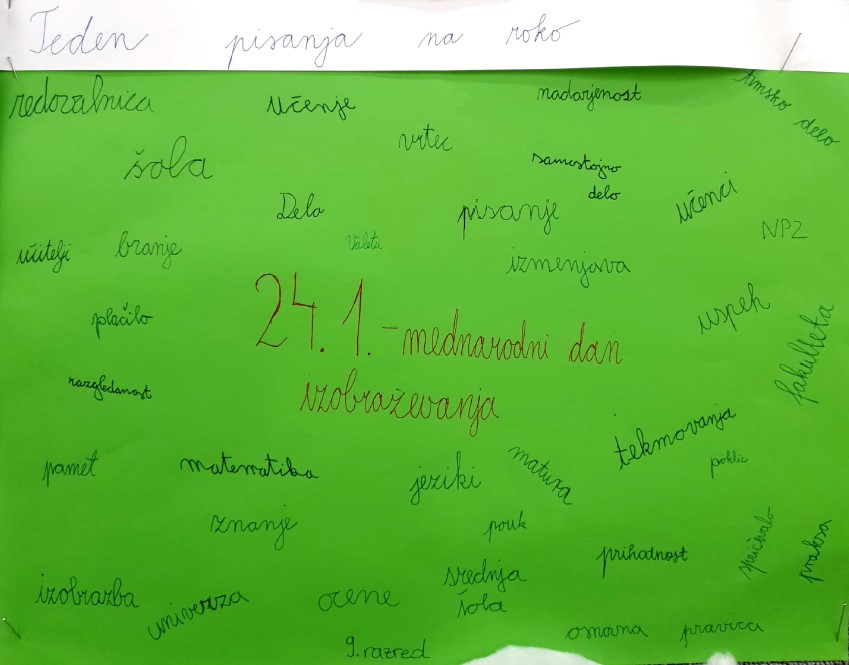 Teden pisanja na roko
redovalnica
učenje
nadarjenost
timsko delo
šola
vrtec
samostojno
delo
Delo
pisanje
učenci
NPZ
učitelji
branje
Valeta
izmenjava
plačilo
24. 1. - mednarodni dan
izobraževanja
uspeh
fakulteta
razgledanost
tekmovanja
pamet
matematika
jeziki
matura
poklic
znanje
pouk
prihodnost
spričevalo
praksa
izobrazba
univerza
ocene
srednja
šola
9. razred
osnovna pravica